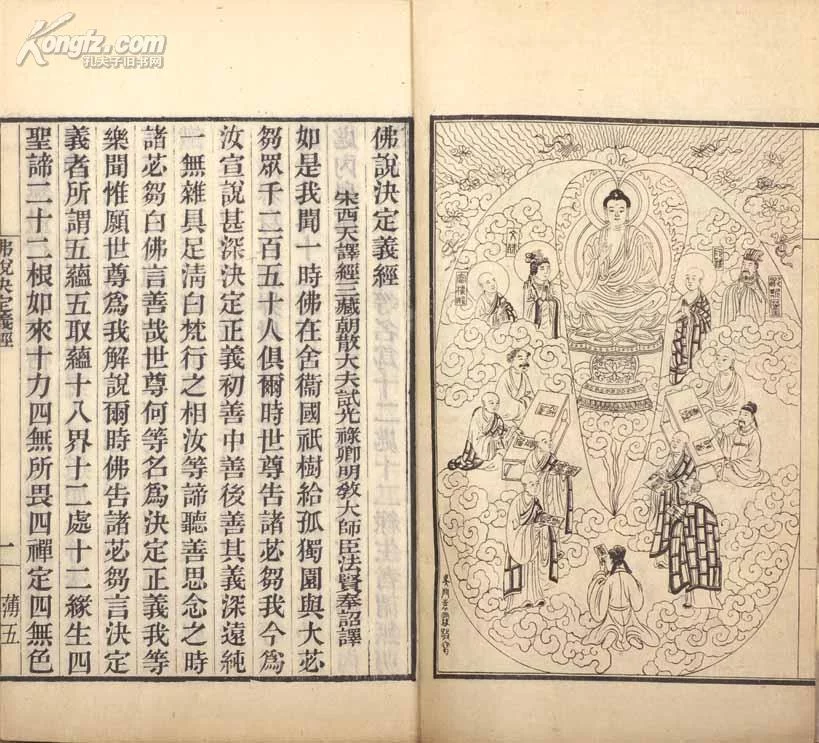 Kongfz.com
孔夫子旧书网
佛說決定義經
宋西天譯經三藏朝散大夫試光祿卿明教大師臣法賢奉詔譯
如是我聞一時佛在舍衞國祇樹給孤獨園與大苾
芻眾千二百五十人俱爾時世尊告諸苾芻我今爲
汝宣說甚深決定正義初善中善後善其義深遠純
一無雜具足淸白梵行之相汝等諦聽善思念之時
諸苾芻白佛言善哉世尊何等名爲決定正義我等
樂聞惟願世尊爲我解說爾時佛告諸苾芻言決定
義者所謂五蘊五取蘊十八界十二處十二緣生四
聖諦二十二根如來十力四無所畏四禪定四無色
佛說決定義經
一
蒲五